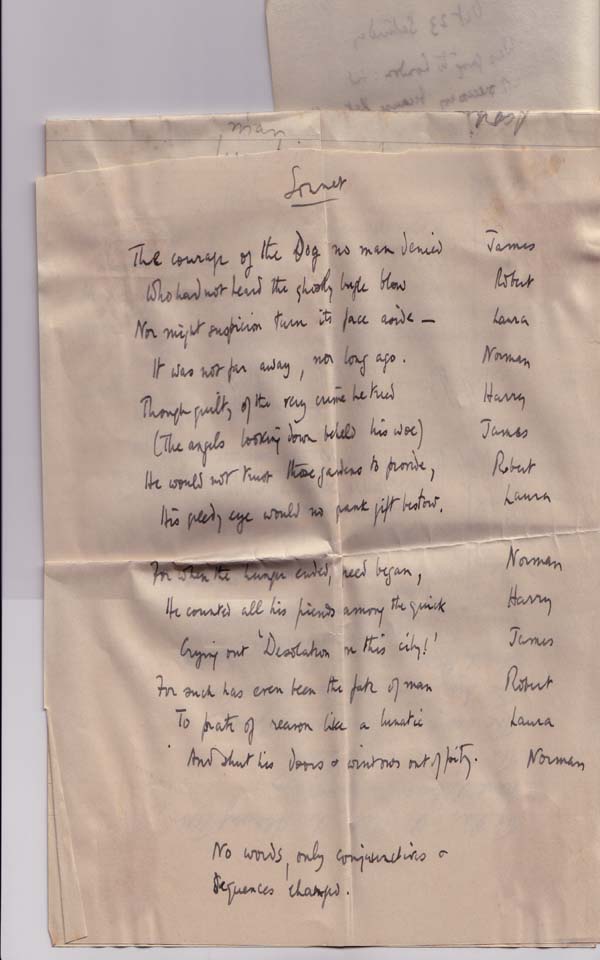 Oct 23 Saturday
Sonnet
The courage of the Dog no man denied James
Who had not heard the ghostly bugle blow Robert
Nor might suspicion turn its face aside — Laura
It was not far away, nor long ago. Norman
Though guilty of the very crime he tried Harry
(The angels looking down beheld his woe) James
He would not trust those gardens to provide, Robert
His greedy eye would no frank gift bestow. Laura
For when the hunger ended, need began, Norman
He counted all his friends among the quick Harry
Crying out 'Desolation on this city!' James
For such has even been the fate of man Robert
To prate of reason like a lunatic Laura
And shut his doors & windows out of pity. Norman
No words, only conjunctives &
sequences changed.